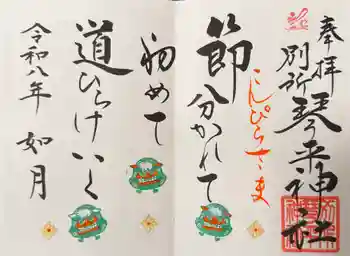 奉拝
別所琴平神社
こんぴらさま
節分かれて
初めて
道ひらけいく
令和八年 如月